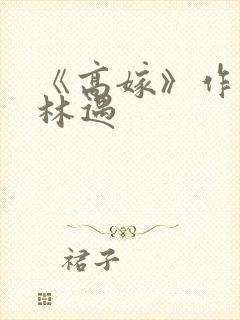 《高嫁》作
林遇
裙子